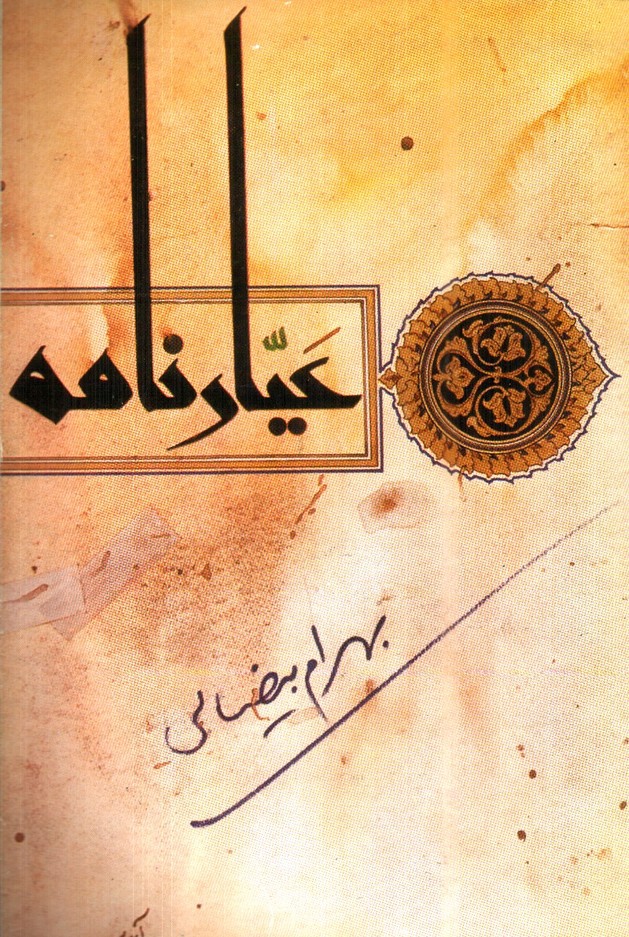 عَیّارنامه
بهرام بیضائی